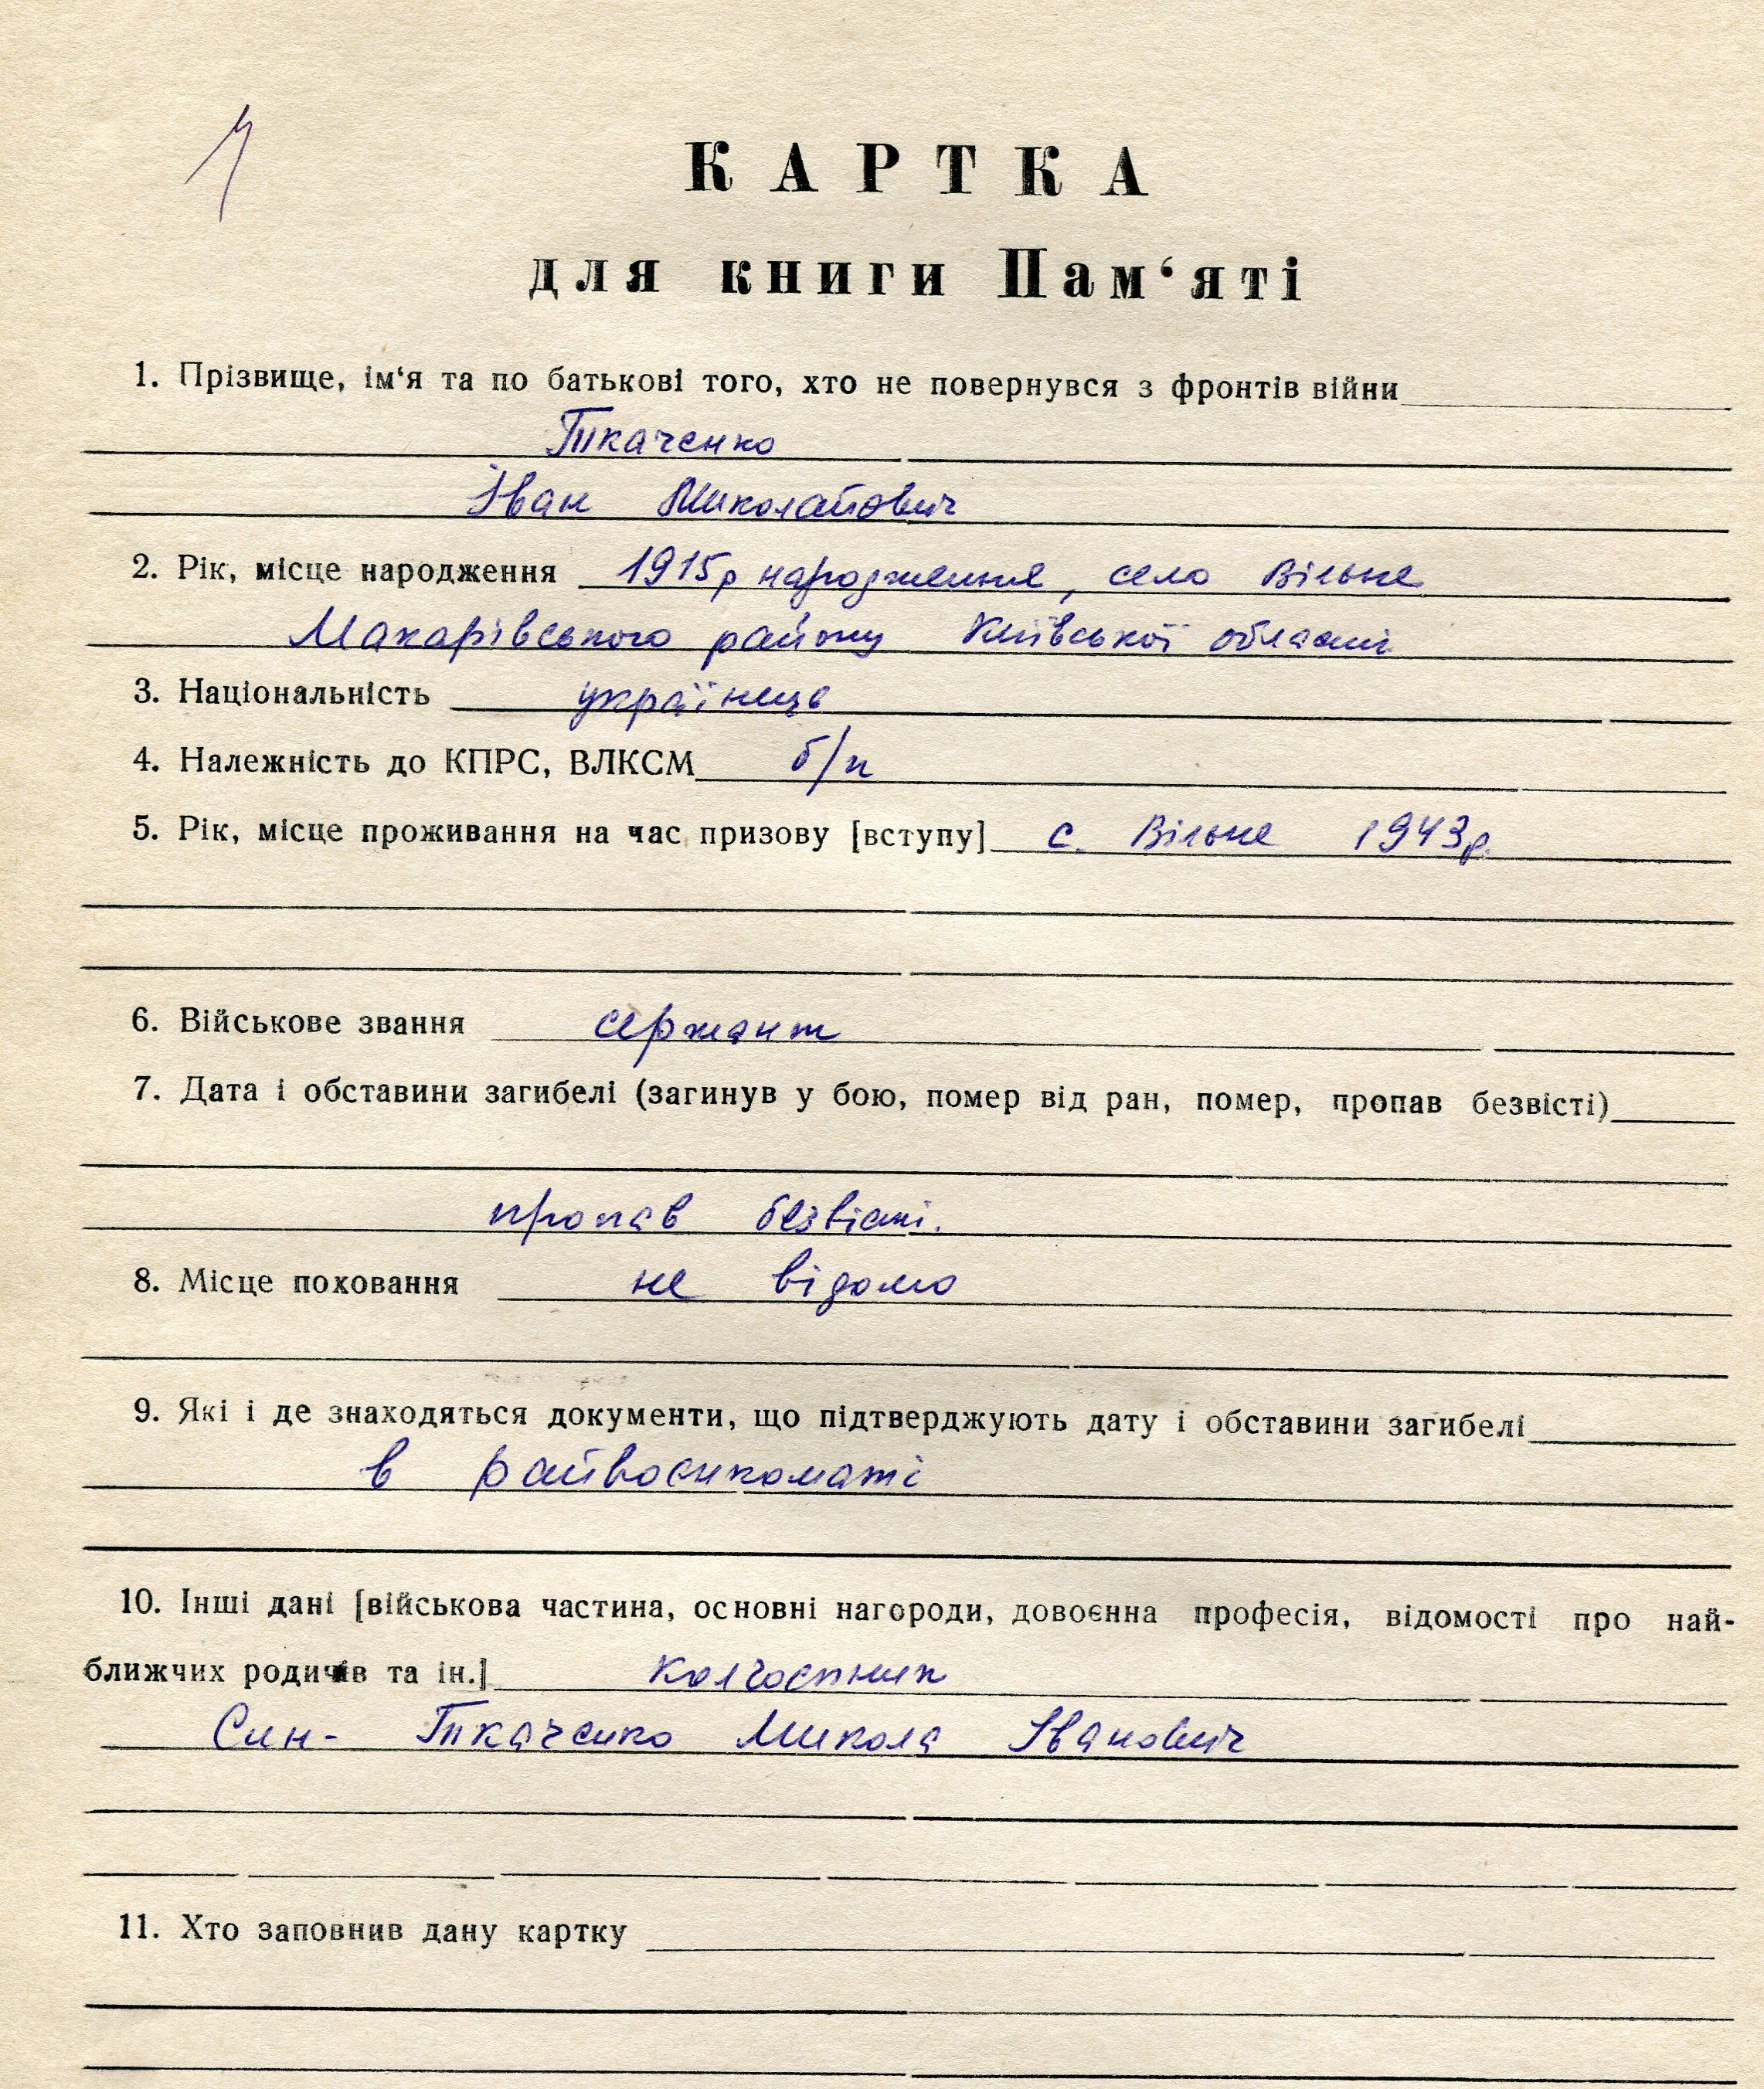 КАРТКА
для книги Пам‘яті
1. Прізвище, ім‘я та по батькові того, хто не повернувся з фронтів війни
Ткаченко
Іван Миколайович
2. Рік, місце народження 1915р народження, село Вільне
Макарівського району Київської області
3. Національність українець
4. Належність до КПРС, ВЛКСМ б/п
5. Рік, місце проживання на час призову [вступу] с. Вільне 1943р.
6. Військове звання сержант
7. Дата і обставини загибелі (загинув у бою, помер від ран, помер, пропав безвісті)
пропав безвісті.
8. Місце поховання не відомо
9. Які і де знаходяться документи, що підтверджують дату і обставини загибелі
в райвоєнкоматі
10. Інші дані [військова частина, основні нагороди, довоєнна професія, відомості про най-
ближчих родичів та ін.] колгоспник
Син- Ткаченко Микола Іванович
11. Хто заповнив дану картку